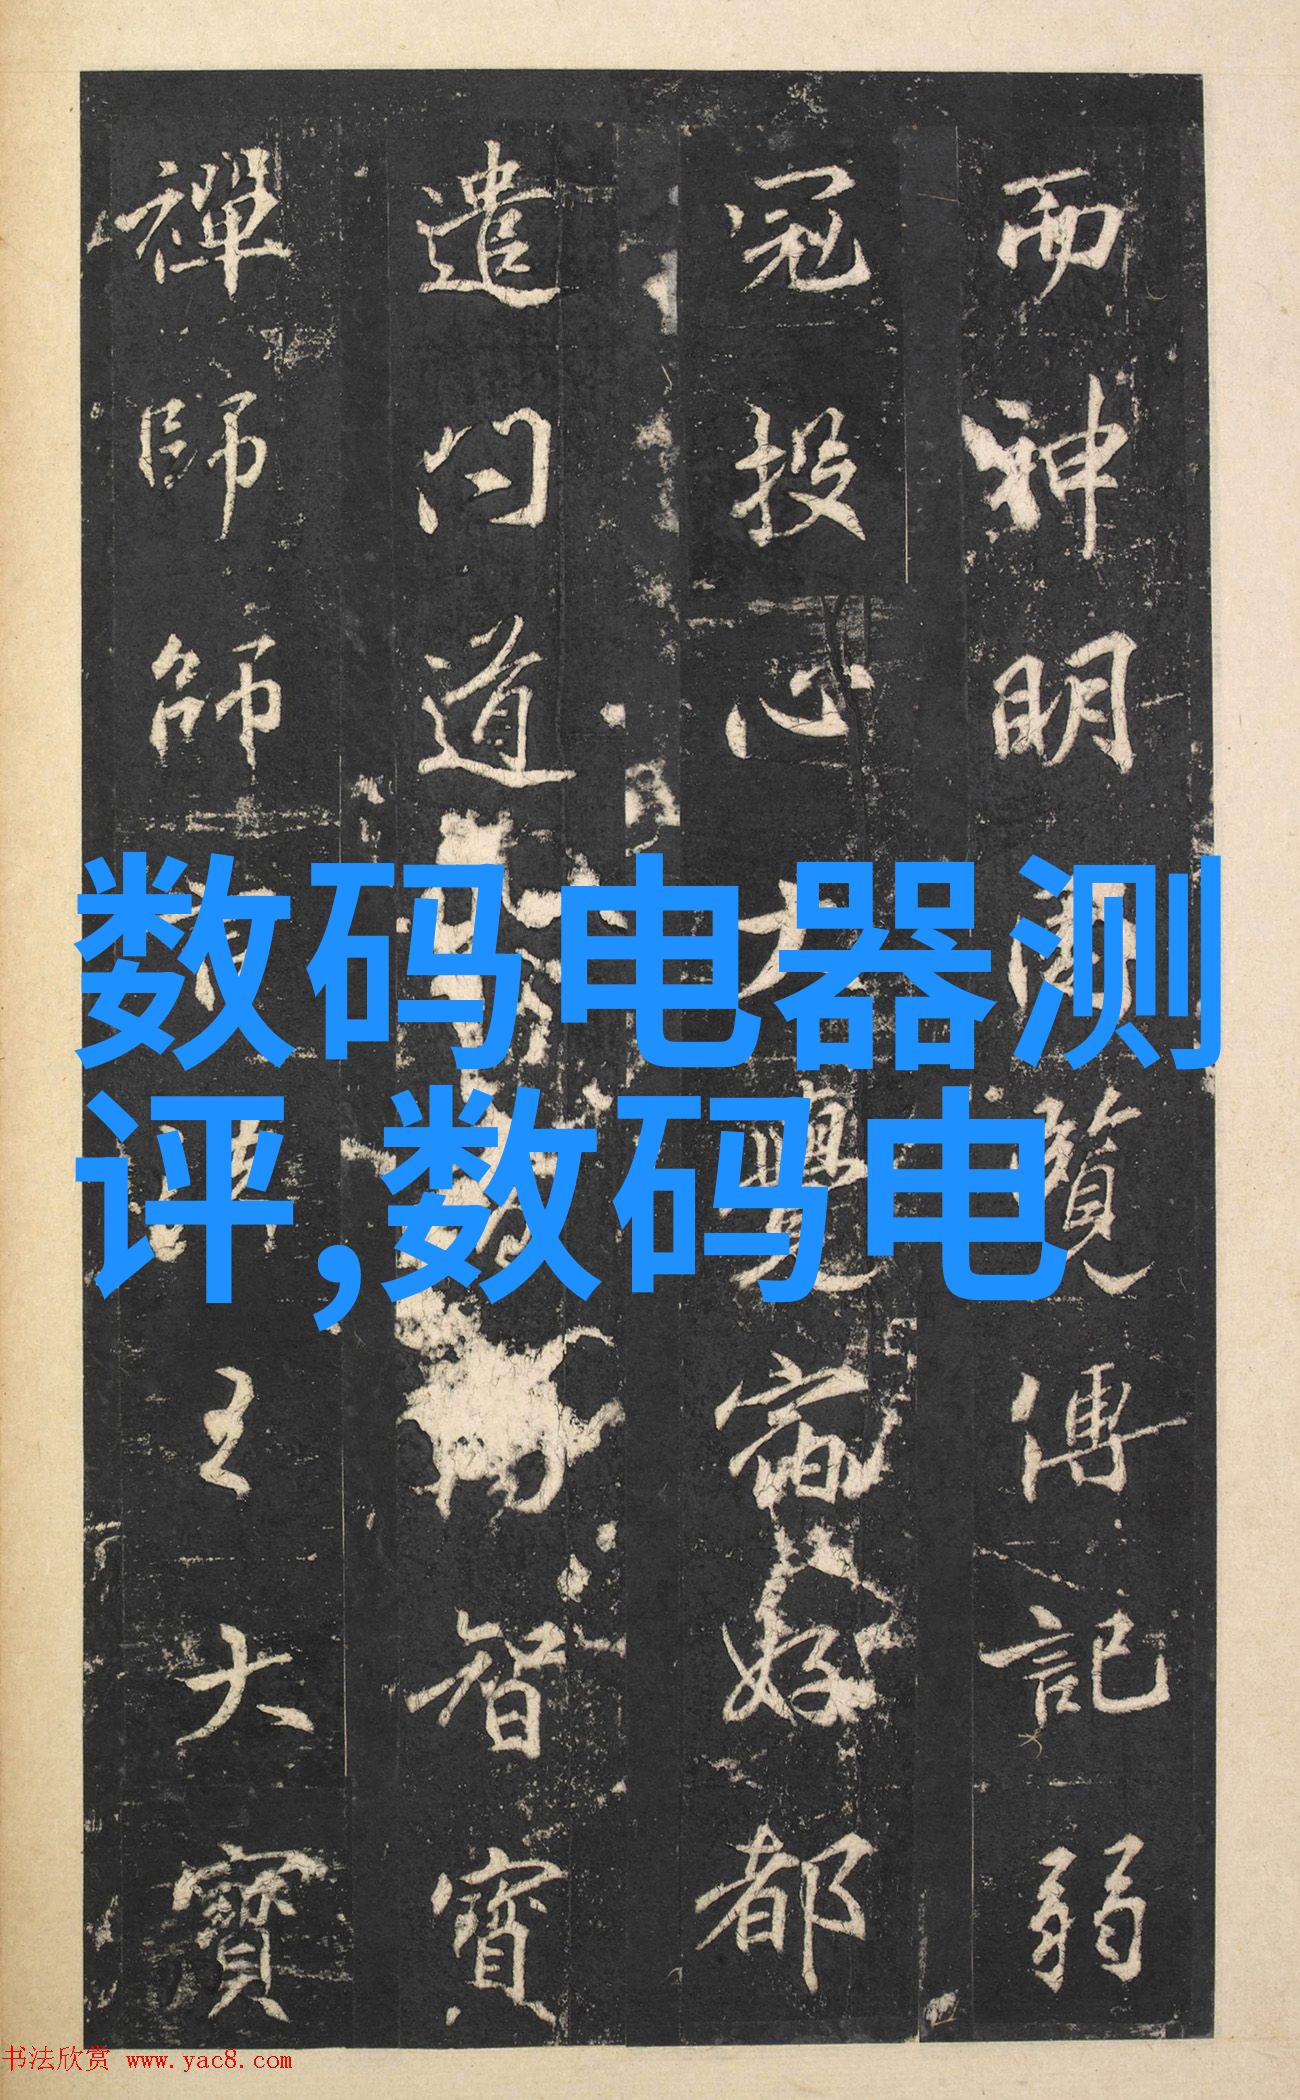 而神明覽傳記弱
冠投心大覺好都
遣問道智寶
禪師師大寶
数码电器测
评,数码电
书法欣赏 www.yac8.com